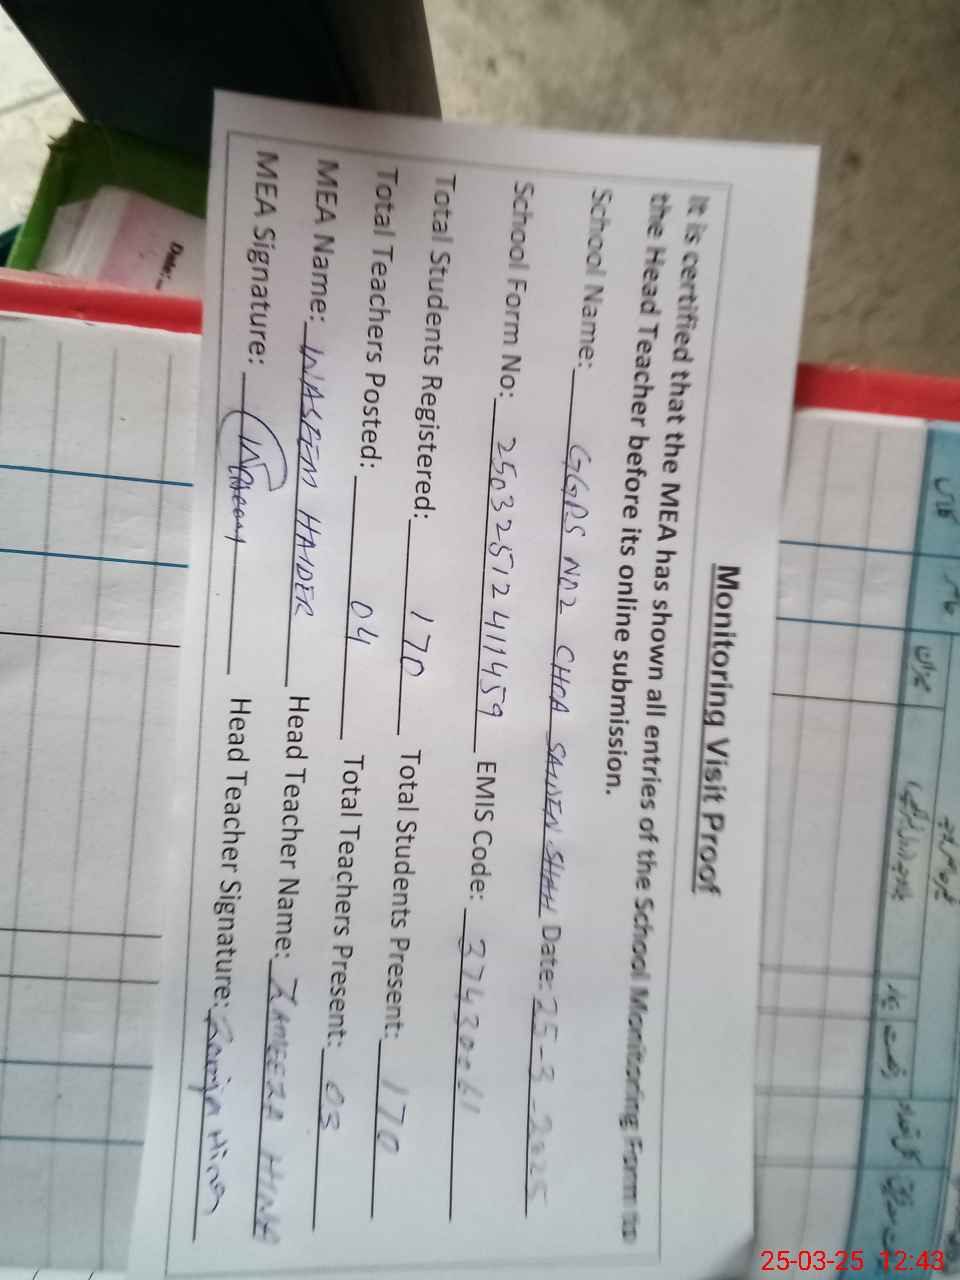 Monitoring Visit Proof
It is certified that the MEA has shown all entries of the School Monitoring Form to
the Head Teacher before its online submission.
School Name: GGPS NO2 CHOA SAIDEN SHAH Date: 25-3-2025
School Form No: 250325124111459 EMIS Code: 37430061
Total Students Registered: 170 Total Students Present: 170
Total Teachers Posted: 04 Total Teachers Present: 03
MEA Name: WASEEM HAIDER Head Teacher Name: ZAMEEZA HINA
MEA Signature: Head Teacher Signature: Hina
Date:
25-03-25 12:43